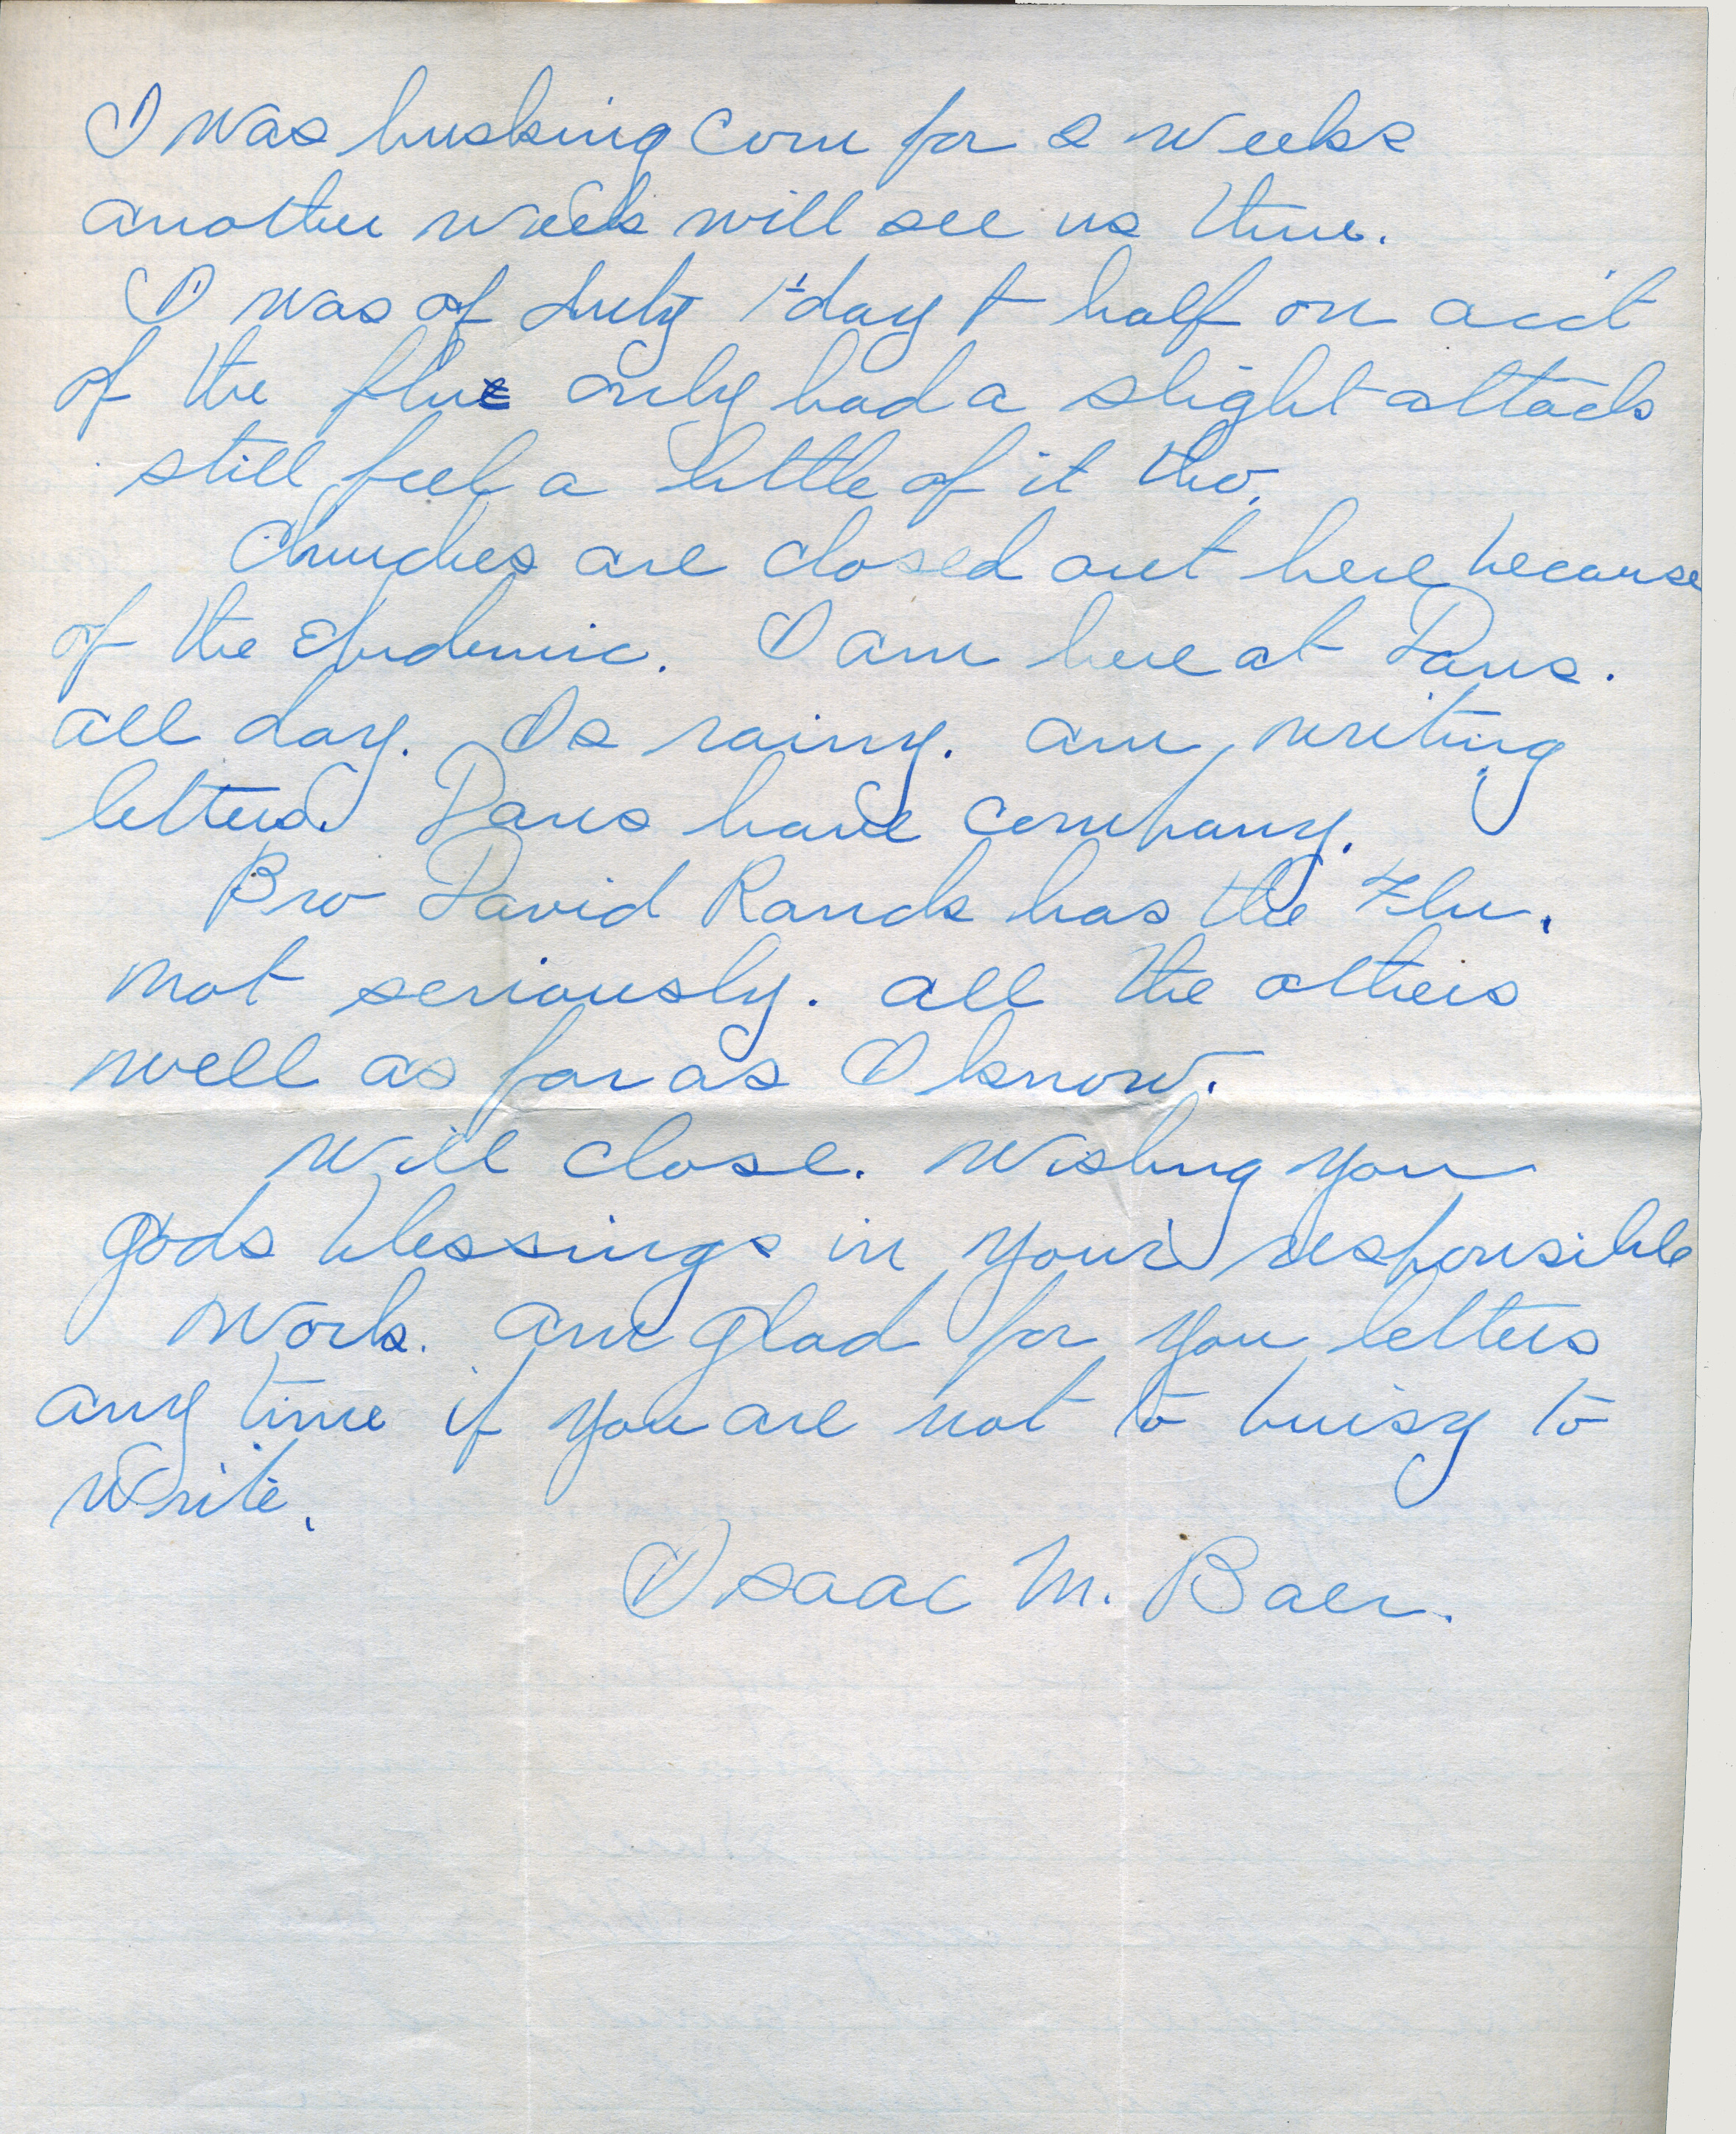 I was husking corn for 2 weeks
another week will see us thru.
I was of duty 1 day & half on acct
of the flu only had a slight attack
still feel a little of it tho.
Churches are closed out here because
of the Epidemic. I am here at Dans.
all day. Is rainy. am writing
letters. Dans have company.
Bro David Ranck has the Flu.
not seriously. all the others
well as far as I know.
Will close. Wishing you
gods blessings in your responsible
work. am glad for you letters
any time if you are not to buisy to
write.
Isaac M. Baer.